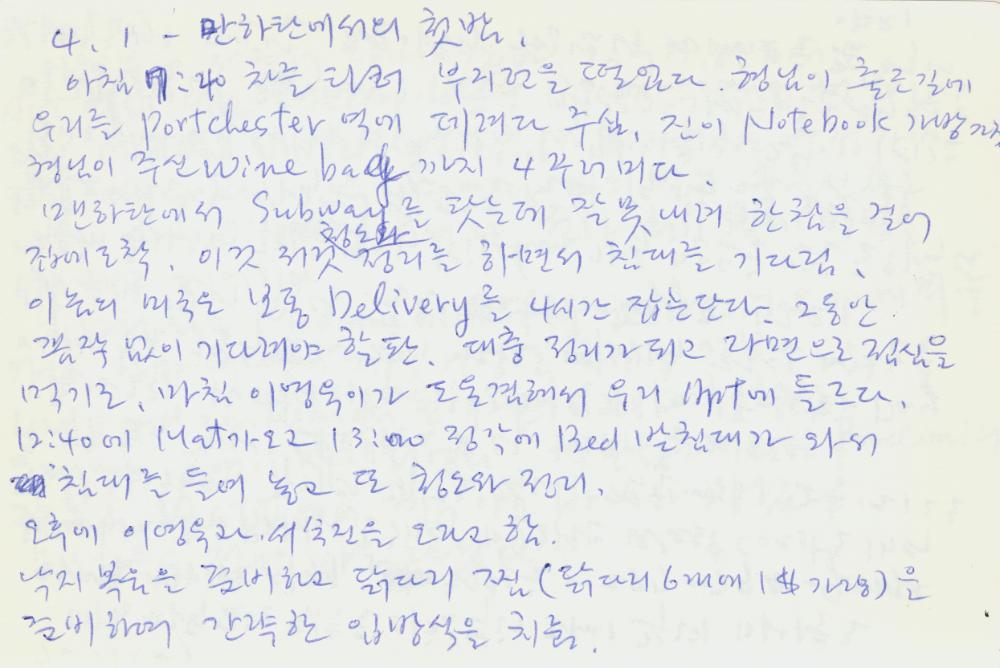 4. 1 - 만하탄에서의 첫밤.
아침 7:40 차를 타러 부리던을 떠났다. 형님이 출근길에
우리를 portchester 역에 데려다 주심. 진이 Notebook 가방까지
형님이 주신 wine bag 까지 4 꾸러미다.
맨하탄에서 Subway를 탓는데 잘못 내려 한참을 걸어
집에 도착. 이것 저것 청소와 정리를 하면서 침대를 기다림.
이놈의 미국은 보통 Delivery를 4시간 잡는단다. 그동안
꼼짝 없이 기다려야 할판. 대충 정리가 되고 라면으로 점심을
먹기로. 마침 이영욱이가 도울겸해서 우리 Apt에 들르다.
12:40에 Mat가 오고 13:00 정각에 Bed 받침대가 와서
침대를 들여 놓고 또 청소와 정리.
오후에 이영욱과 서숙진을 오라고 함.
낙지볶음을 준비하고 닭다리 찜 (닭다리 6개에 1$ 가량)을
준비하여 간략한 입방식을 치룸.